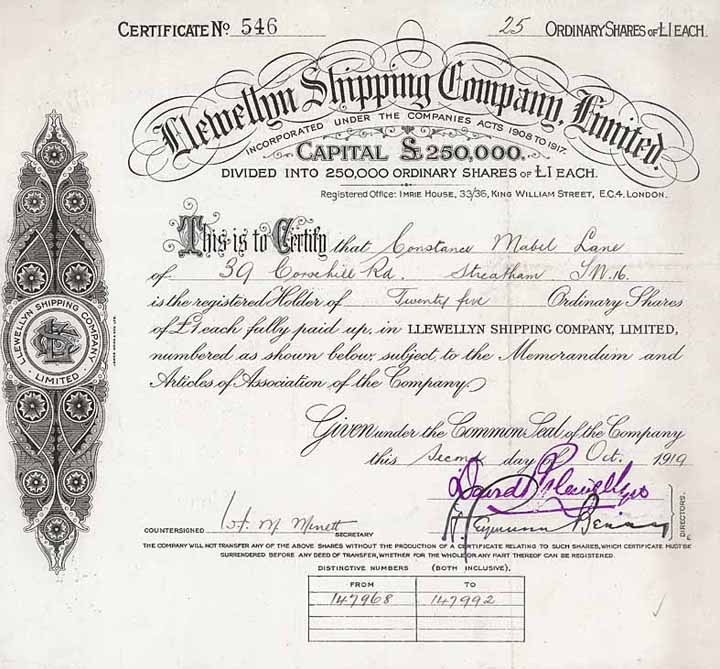 CERTIFICATE No. 546
25 ORDINARY SHARES OF £1 EACH.
Llewellyn Shipping Company, Limited.
INCORPORATED UNDER THE COMPANIES ACTS 1908 TO 1917.
CAPITAL £250,000.
DIVIDED INTO 250,000 ORDINARY SHARES OF £1 EACH.
Registered Office: IMRIE HOUSE, 33/36, KING WILLIAM STREET, E.C.4. LONDON.
This is to Certify that Constance Mabel Lane
of 39 Rd. Streatham S.W.16.
is the registered Holder of Twenty five Ordinary Shares
of £1 each fully paid up, in LLEWELLYN SHIPPING COMPANY, LIMITED,
numbered as shown below, subject to the Memorandum and
Articles of Association of the Company.
LLEWELLYN SHIPPING COMPANY
LIMITED
Given under the Common Seal of the Company
this Second day of Oct. 1919
David Llewellyn
DIRECTORS.
COUNTERSIGNED
SECRETARY
THE COMPANY WILL NOT TRANSFER ANY OF THE ABOVE SHARES WITHOUT THE PRODUCTION OF A CERTIFICATE RELATING TO SUCH SHARES, WHICH CERTIFICATE MUST BE
SURRENDERED BEFORE ANY DEED OF TRANSFER, WHETHER FOR THE WHOLE OR ANY PART THEREOF CAN BE REGISTERED.
DISTINCTIVE NUMBERS (BOTH INCLUSIVE).
FROM TO
147968 147992